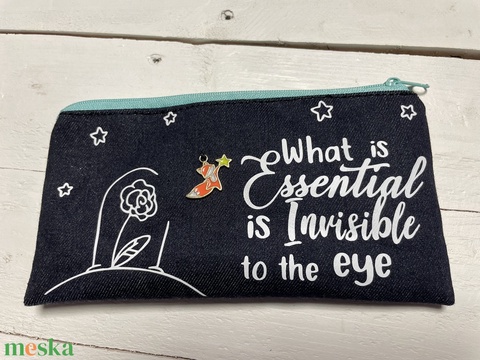 What is
Essential
is Invisible
to the eye
meska